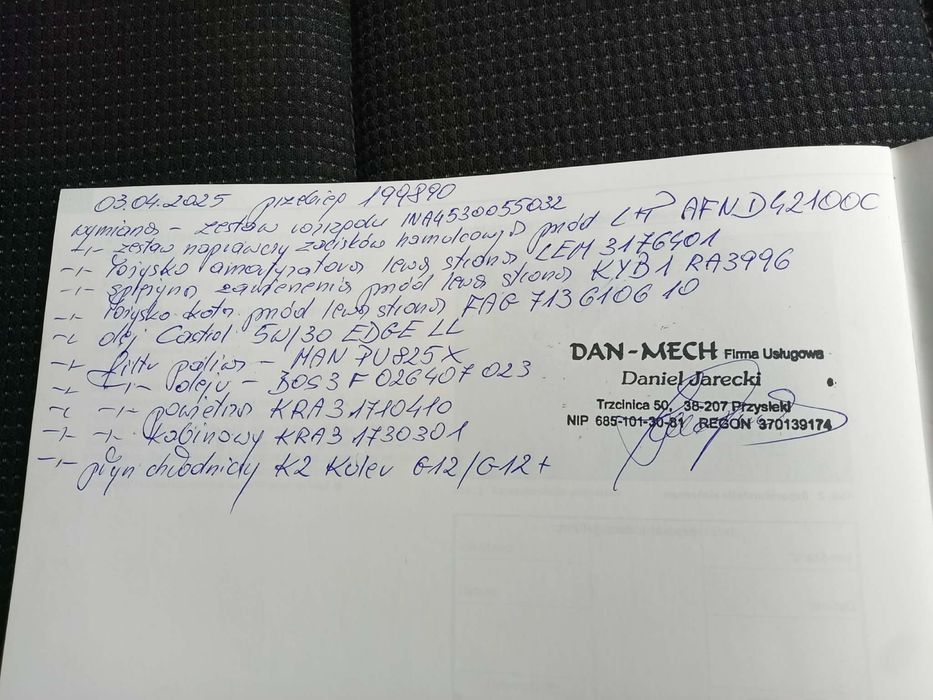 03.04.2025 przebieg 199890
wymiana - zestaw rozrządu INA4530055032
-||- zestaw naprawczy zacisków hamulcowych przód LH AFND42100C
-||- łożysko amortyzatora lewa strona LEM 3176401
-||- sprężyna zawieszenia przód lewa strona KYB1 RA3996
-||- łożysko koła przód lewa strona FAG 713610610
-||- olej Castrol 5W/30 EDGE LL
-||- filtr paliwa - MAN PU825X
-||- -||- oleju - BOS3 F026407023
-||- -||- powietrza KRA3 1710410
-||- -||- kabinowy KRA3 1730301
-||- płyn chłodniczy K2 Kuler G12/G12+
DAN-MECH Firma Usługowa
Daniel Jarecki
Trzcinica 50, 38-207 Przysieki
NIP 685-101-30-81 REGON 370139174